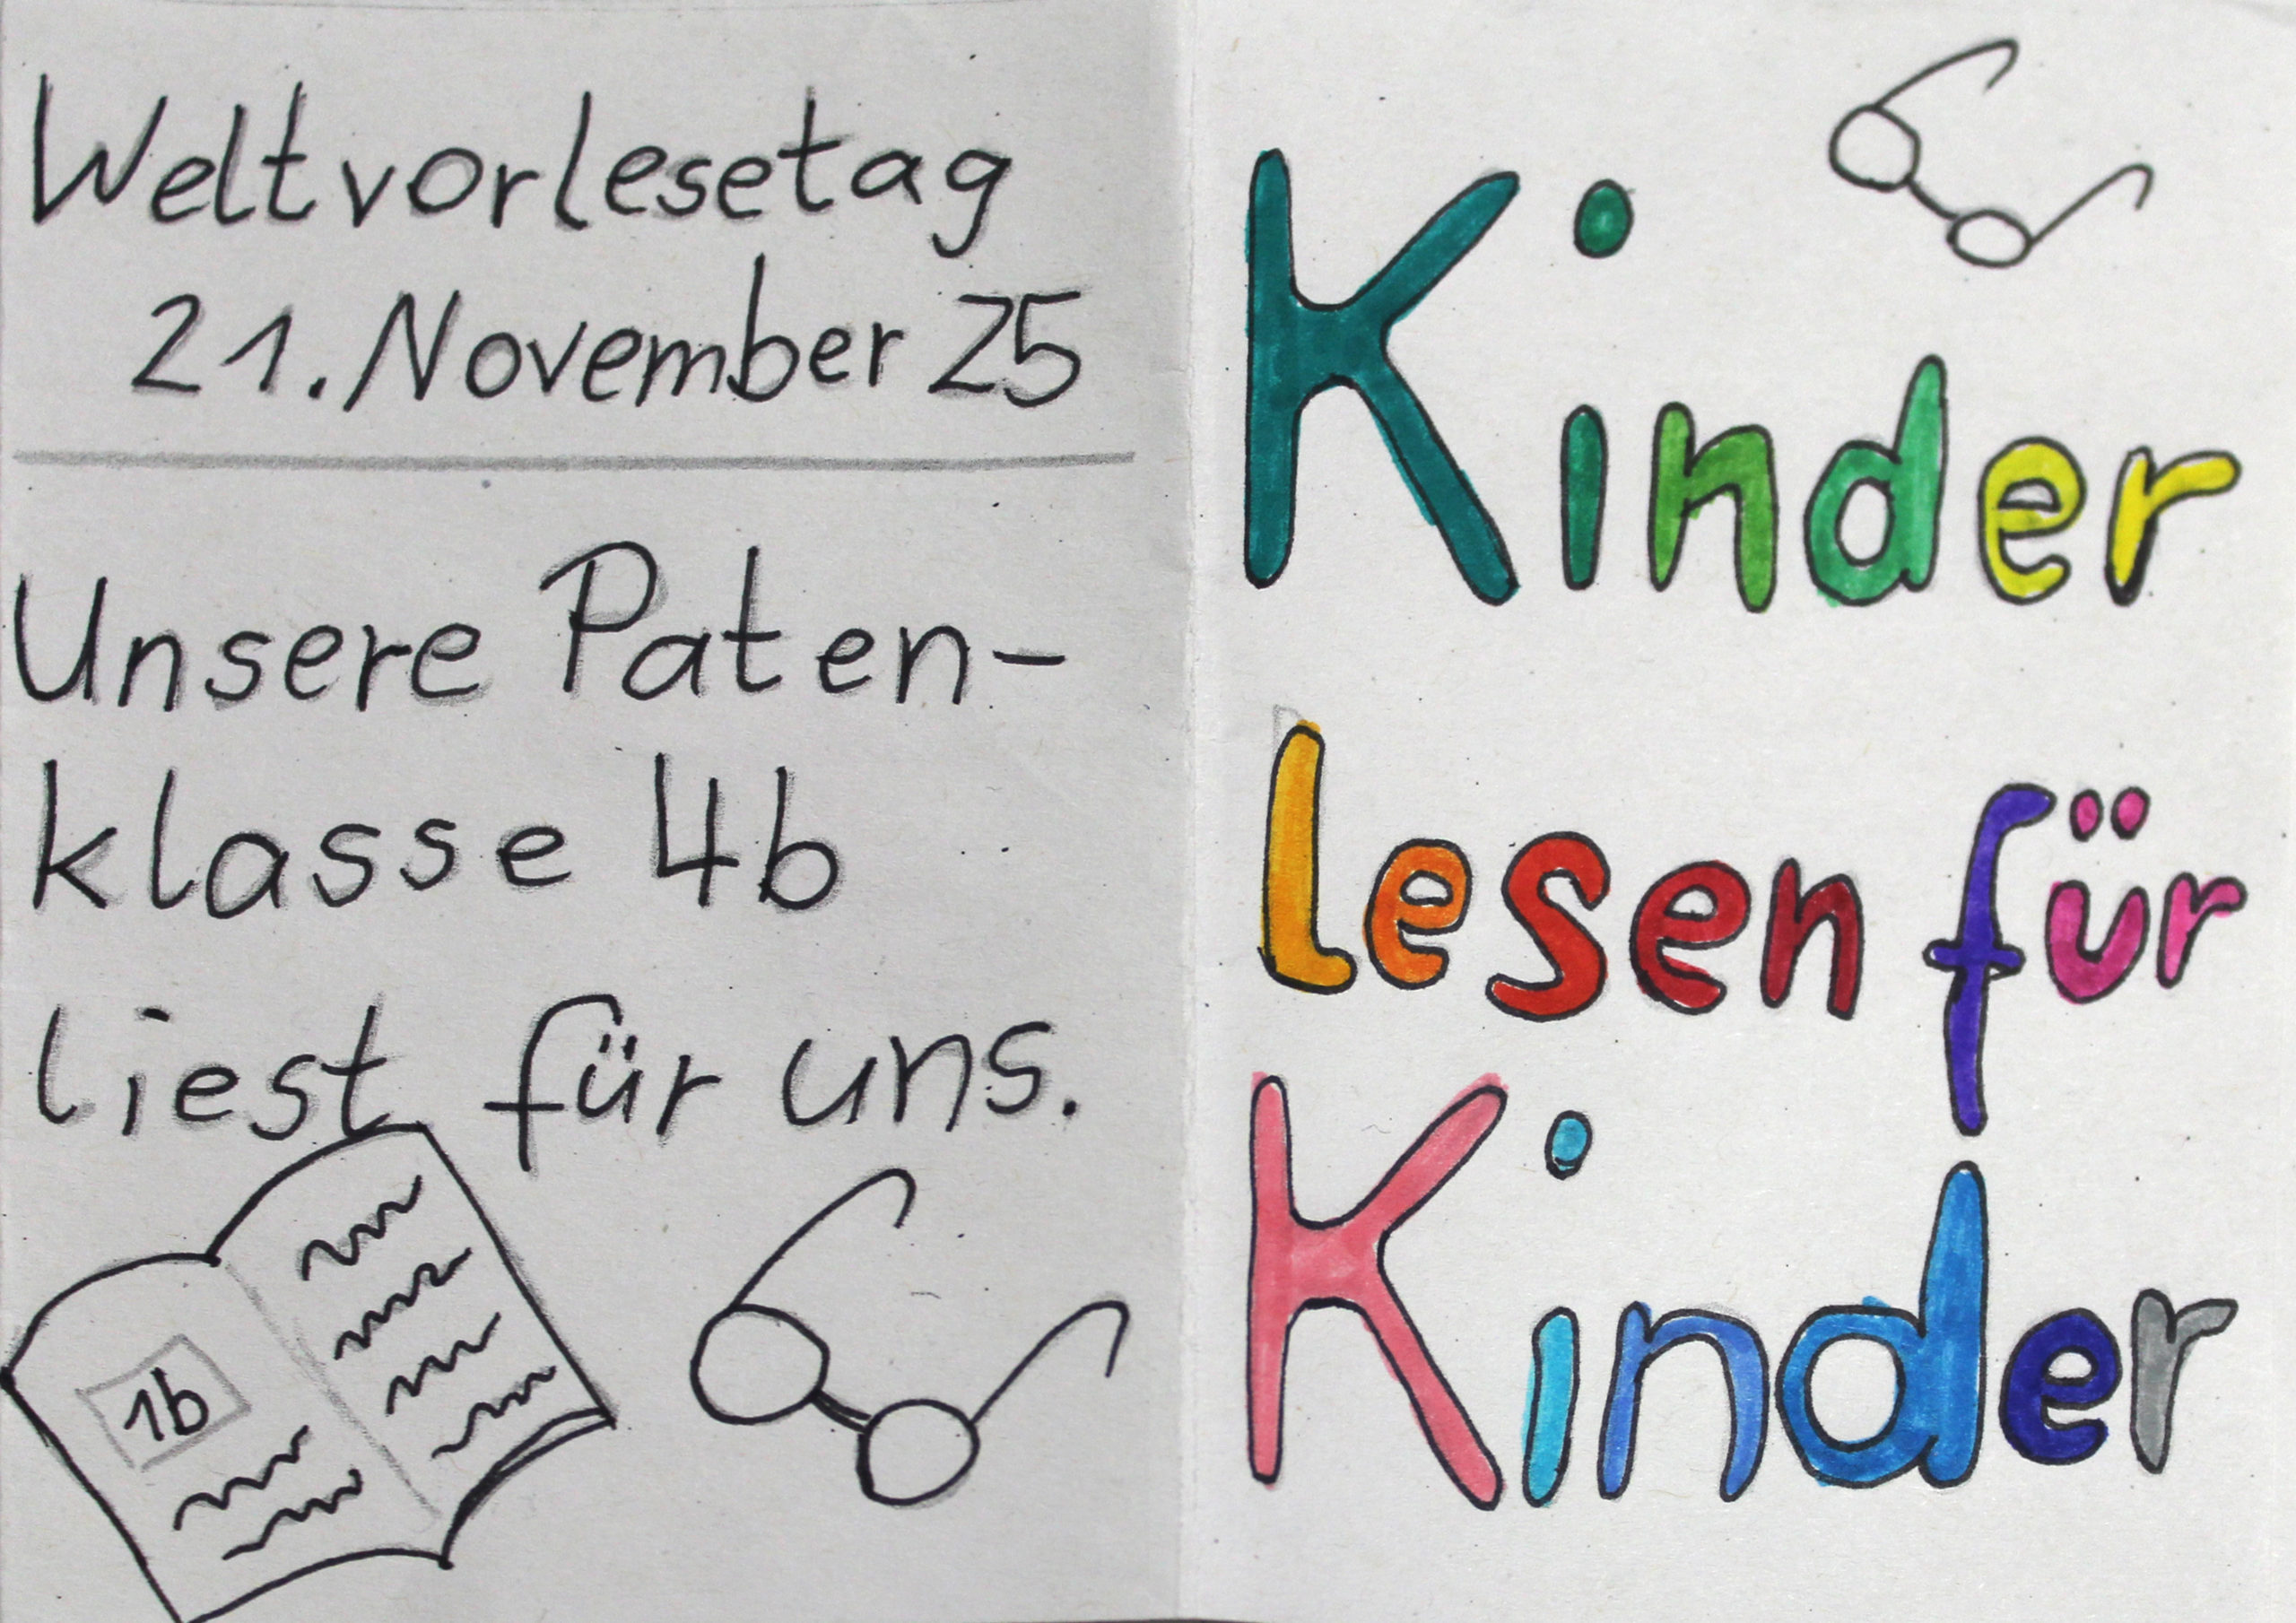 Weltvorlesetag
21. November 25
Unsere Paten-
klasse 4b
liest für uns.
1b
Kinder
lesen für
Kinder